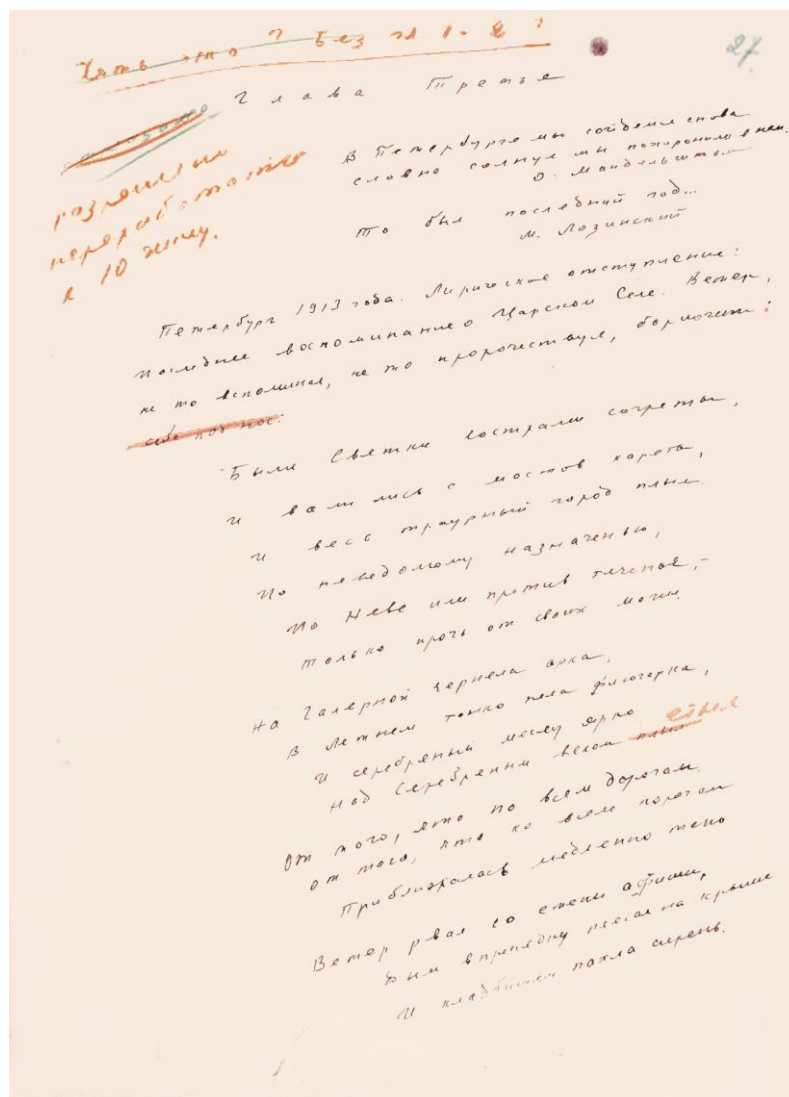 Хоть это? Без гл 1-2?
27.
Глава Третья
разрешили
переработать
к 10 экму.
В Петербурге мы сойдемся снова
словно солнце мы похоронили в нем.
О. Мандельштам
То был последний год...
М. Лозинский
Петербург 1913 года. Лирическое отступление:
последнее воспоминание о Царском Селе. Ветер,
не то вспоминая, не то пророчествуя, бормочет:
себе под нос:
Были Святки кострами согреты,
и валились с мостов кареты,
и весь траурный город плыл
По неведомому назначенью,
По Неве или против теченья, -
только прочь от своих могил.
На Галерной чернела арка,
В Летнем тонко пела флюгарка,
И серебряный месяц ярко
Над Серебряным веком плыл стыл
От того, что по всем дорогам,
от того, что ко всем порогам
Приближалась медленно тень
Ветер рвал со стены афиши,
Дым вприсядку плясал на крыше
И кладбищем пахла сирень.